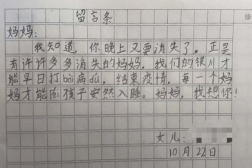 留言条
妈妈：
我知道，你晚上又要消失了。正是
有许许多多消失的妈妈，我们的银川才
能早日打bài病毒，结束疫情，每一个妈
妈才能陪孩子安然入睡。妈妈，我想你！
女儿：
10月22日